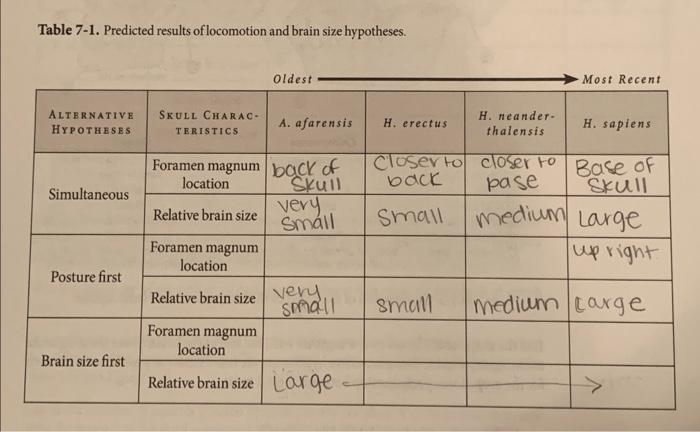 Table 7-1. Predicted results of locomotion and brain size hypotheses.
Oldest Most Recent
ALTERNATIVE HYPOTHESES
SKULL CHARAC-
TERISTICS
A. afarensis
H. erectus
H. neander-
thalensis
H. sapiens
Simultaneous
Foramen magnum
location
back of
skull
Closer to
back
closer to
base
Base of
skull
Relative brain size
very
small
small
medium
Large
Posture first
Foramen magnum
location
up right
Relative brain size
very
small
small
medium
Large
Brain size first
Foramen magnum
location
Relative brain size
Large